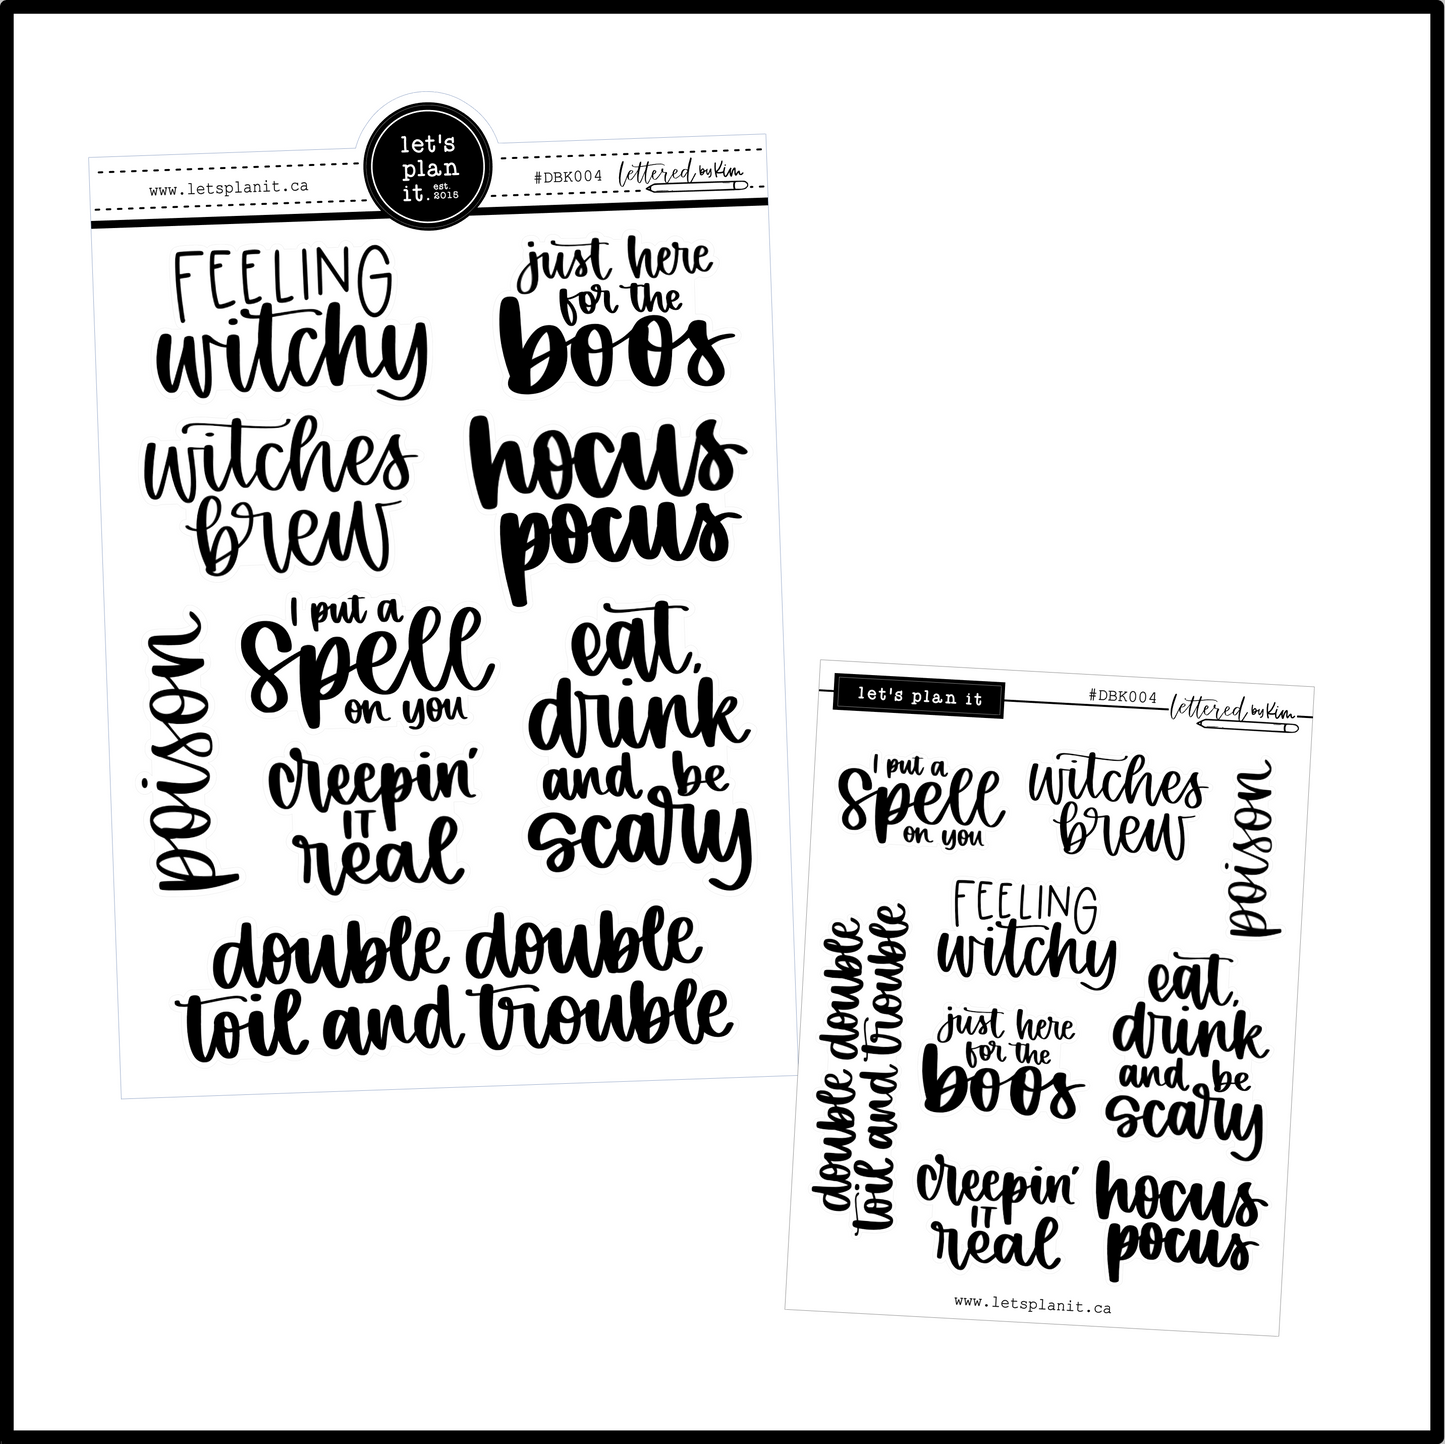 let's
plan
it. est. 2015
www.letsplanit.ca
#DBK004 lettered by Kim
FEELING
witchy
just here
for the
boos
witches
brew
hocus
pocus
poison
I put a
spell
on you
eat,
drink
and be
scary
creepin'
IT
real
double double
toil and trouble
let's plan it
#DBK004 lettered by Kim
I put a
spell
on you
witches
brew
poison
FEELING
witchy
double double
toil and trouble
just here
for the
boos
eat,
drink
and be
scary
creepin'
IT
real
hocus
pocus
www.letsplanit.ca